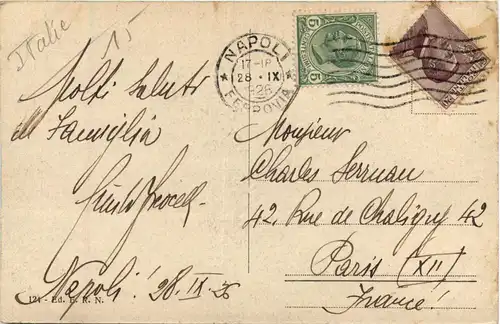 Italie
15
NAPOLI
17-18
28 · IX
1926
FERROVIA
Molti saluti
Famiglia
Napoli! 28 IX-26
124 - Ed. E. R. N.
Monsieur
Charles Serruau
42. Rue de Chaligny 42
Paris (XII)
France!